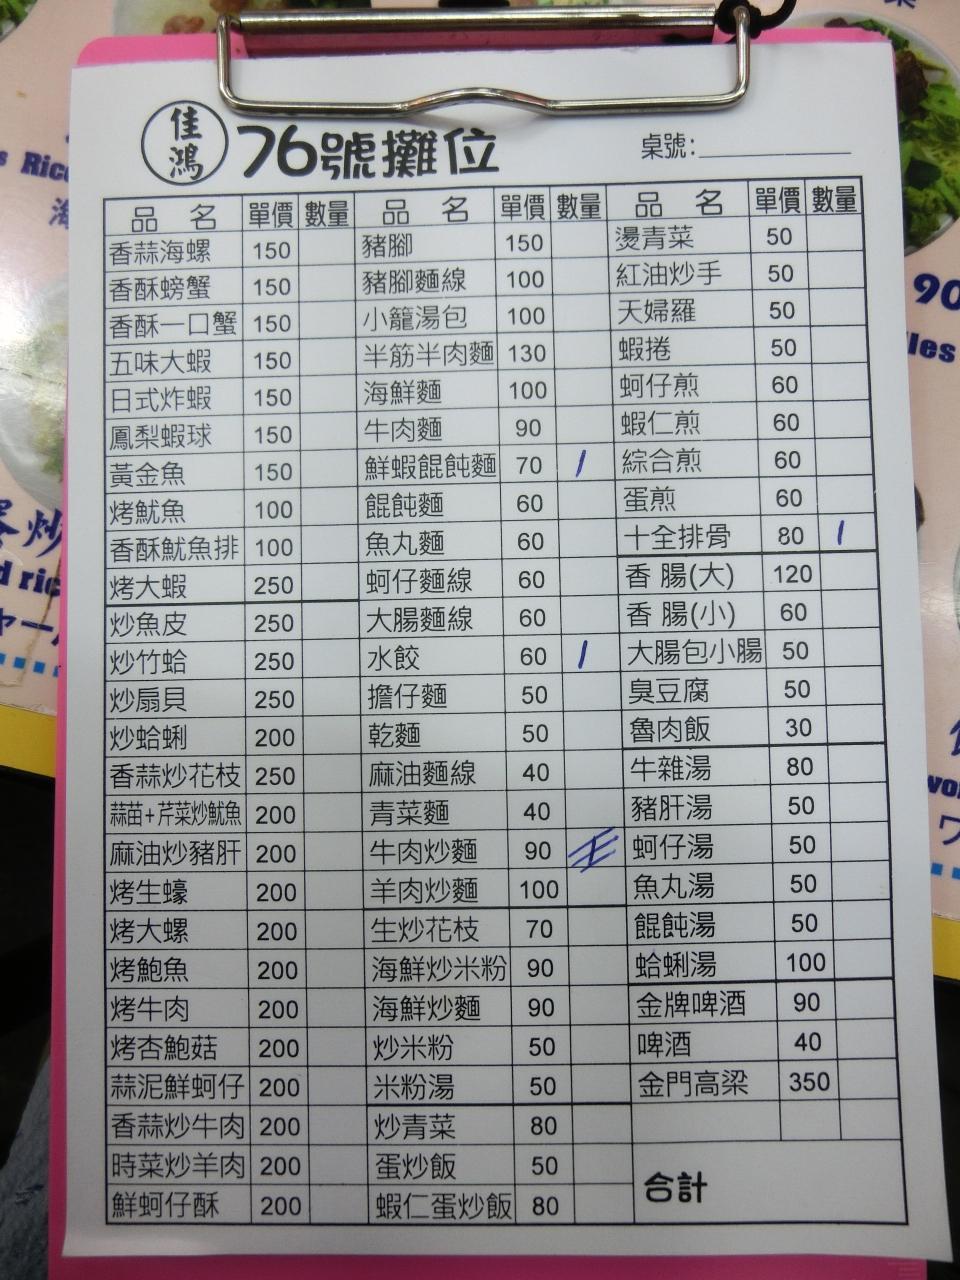 佳鴻 76號攤位 桌號:
品 名 單價 數量 品 名 單價 數量 品 名 單價 數量
香蒜海螺 150 豬腳 150 燙青菜 50
香酥螃蟹 150 豬腳麵線 100 紅油炒手 50
香酥一口蟹 150 小籠湯包 100 天婦羅 50
五味大蝦 150 半筋半肉麵 130 蝦捲 50
日式炸蝦 150 海鮮麵 100 蚵仔煎 60
鳳梨蝦球 150 牛肉麵 90 蝦仁煎 60
黃金魚 150 鮮蝦餛飩麵 70 / 綜合煎 60
烤魷魚 100 餛飩麵 60 蛋煎 60
香酥魷魚排 100 魚丸麵 60 十全排骨 80 /
烤大蝦 250 蚵仔麵線 60 香 腸(大) 120
炒魚皮 250 大腸麵線 60 香 腸(小) 60
炒竹蛤 250 水餃 60 / 大腸包小腸 50
炒扇貝 250 擔仔麵 50 臭豆腐 50
炒蛤蜊 200 乾麵 50 魯肉飯 30
香蒜炒花枝 250 麻油麵線 40 牛雜湯 80
蒜苗+芹菜炒魷魚 200 青菜麵 40 豬肝湯 50
麻油炒豬肝 200 牛肉炒麵 90 蚵仔湯 50
烤生蠔 200 羊肉炒麵 100 魚丸湯 50
烤大螺 200 生炒花枝 70 餛飩湯 50
烤鮑魚 200 海鮮炒米粉 90 蛤蜊湯 100
烤牛肉 200 海鮮炒麵 90 金牌啤酒 90
烤杏鮑菇 200 炒米粉 50 啤酒 40
蒜泥鮮蚵仔 200 米粉湯 50 金門高梁 350
香蒜炒牛肉 200 炒青菜 80
時菜炒羊肉 200 蛋炒飯 50 合計
鮮蚵仔酥 200 蝦仁蛋炒飯 80
90